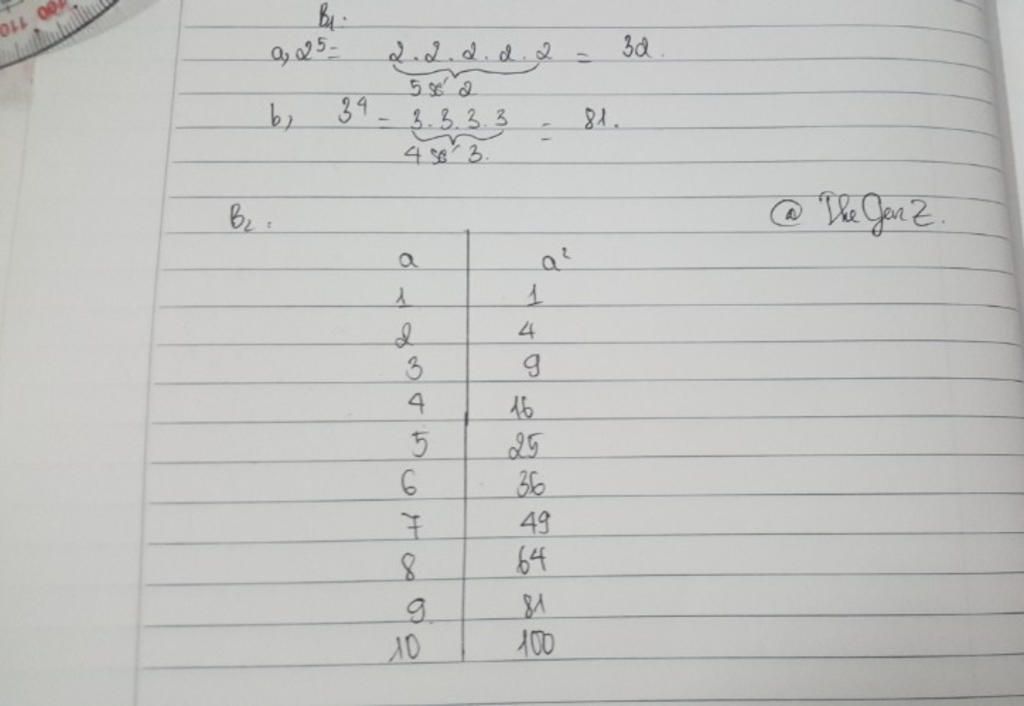 100 110
B₁.
a, 2⁵ = 2.2.2.2.2 = 32.
5 số 2
b, 3⁴ = 3.3.3.3 = 81.
4 số 3.
B₂.
@ The Gen Z.
a a²
1 1
2 4
3 9
4 16
5 25
6 36
7 49
8 64
9 81
10 100